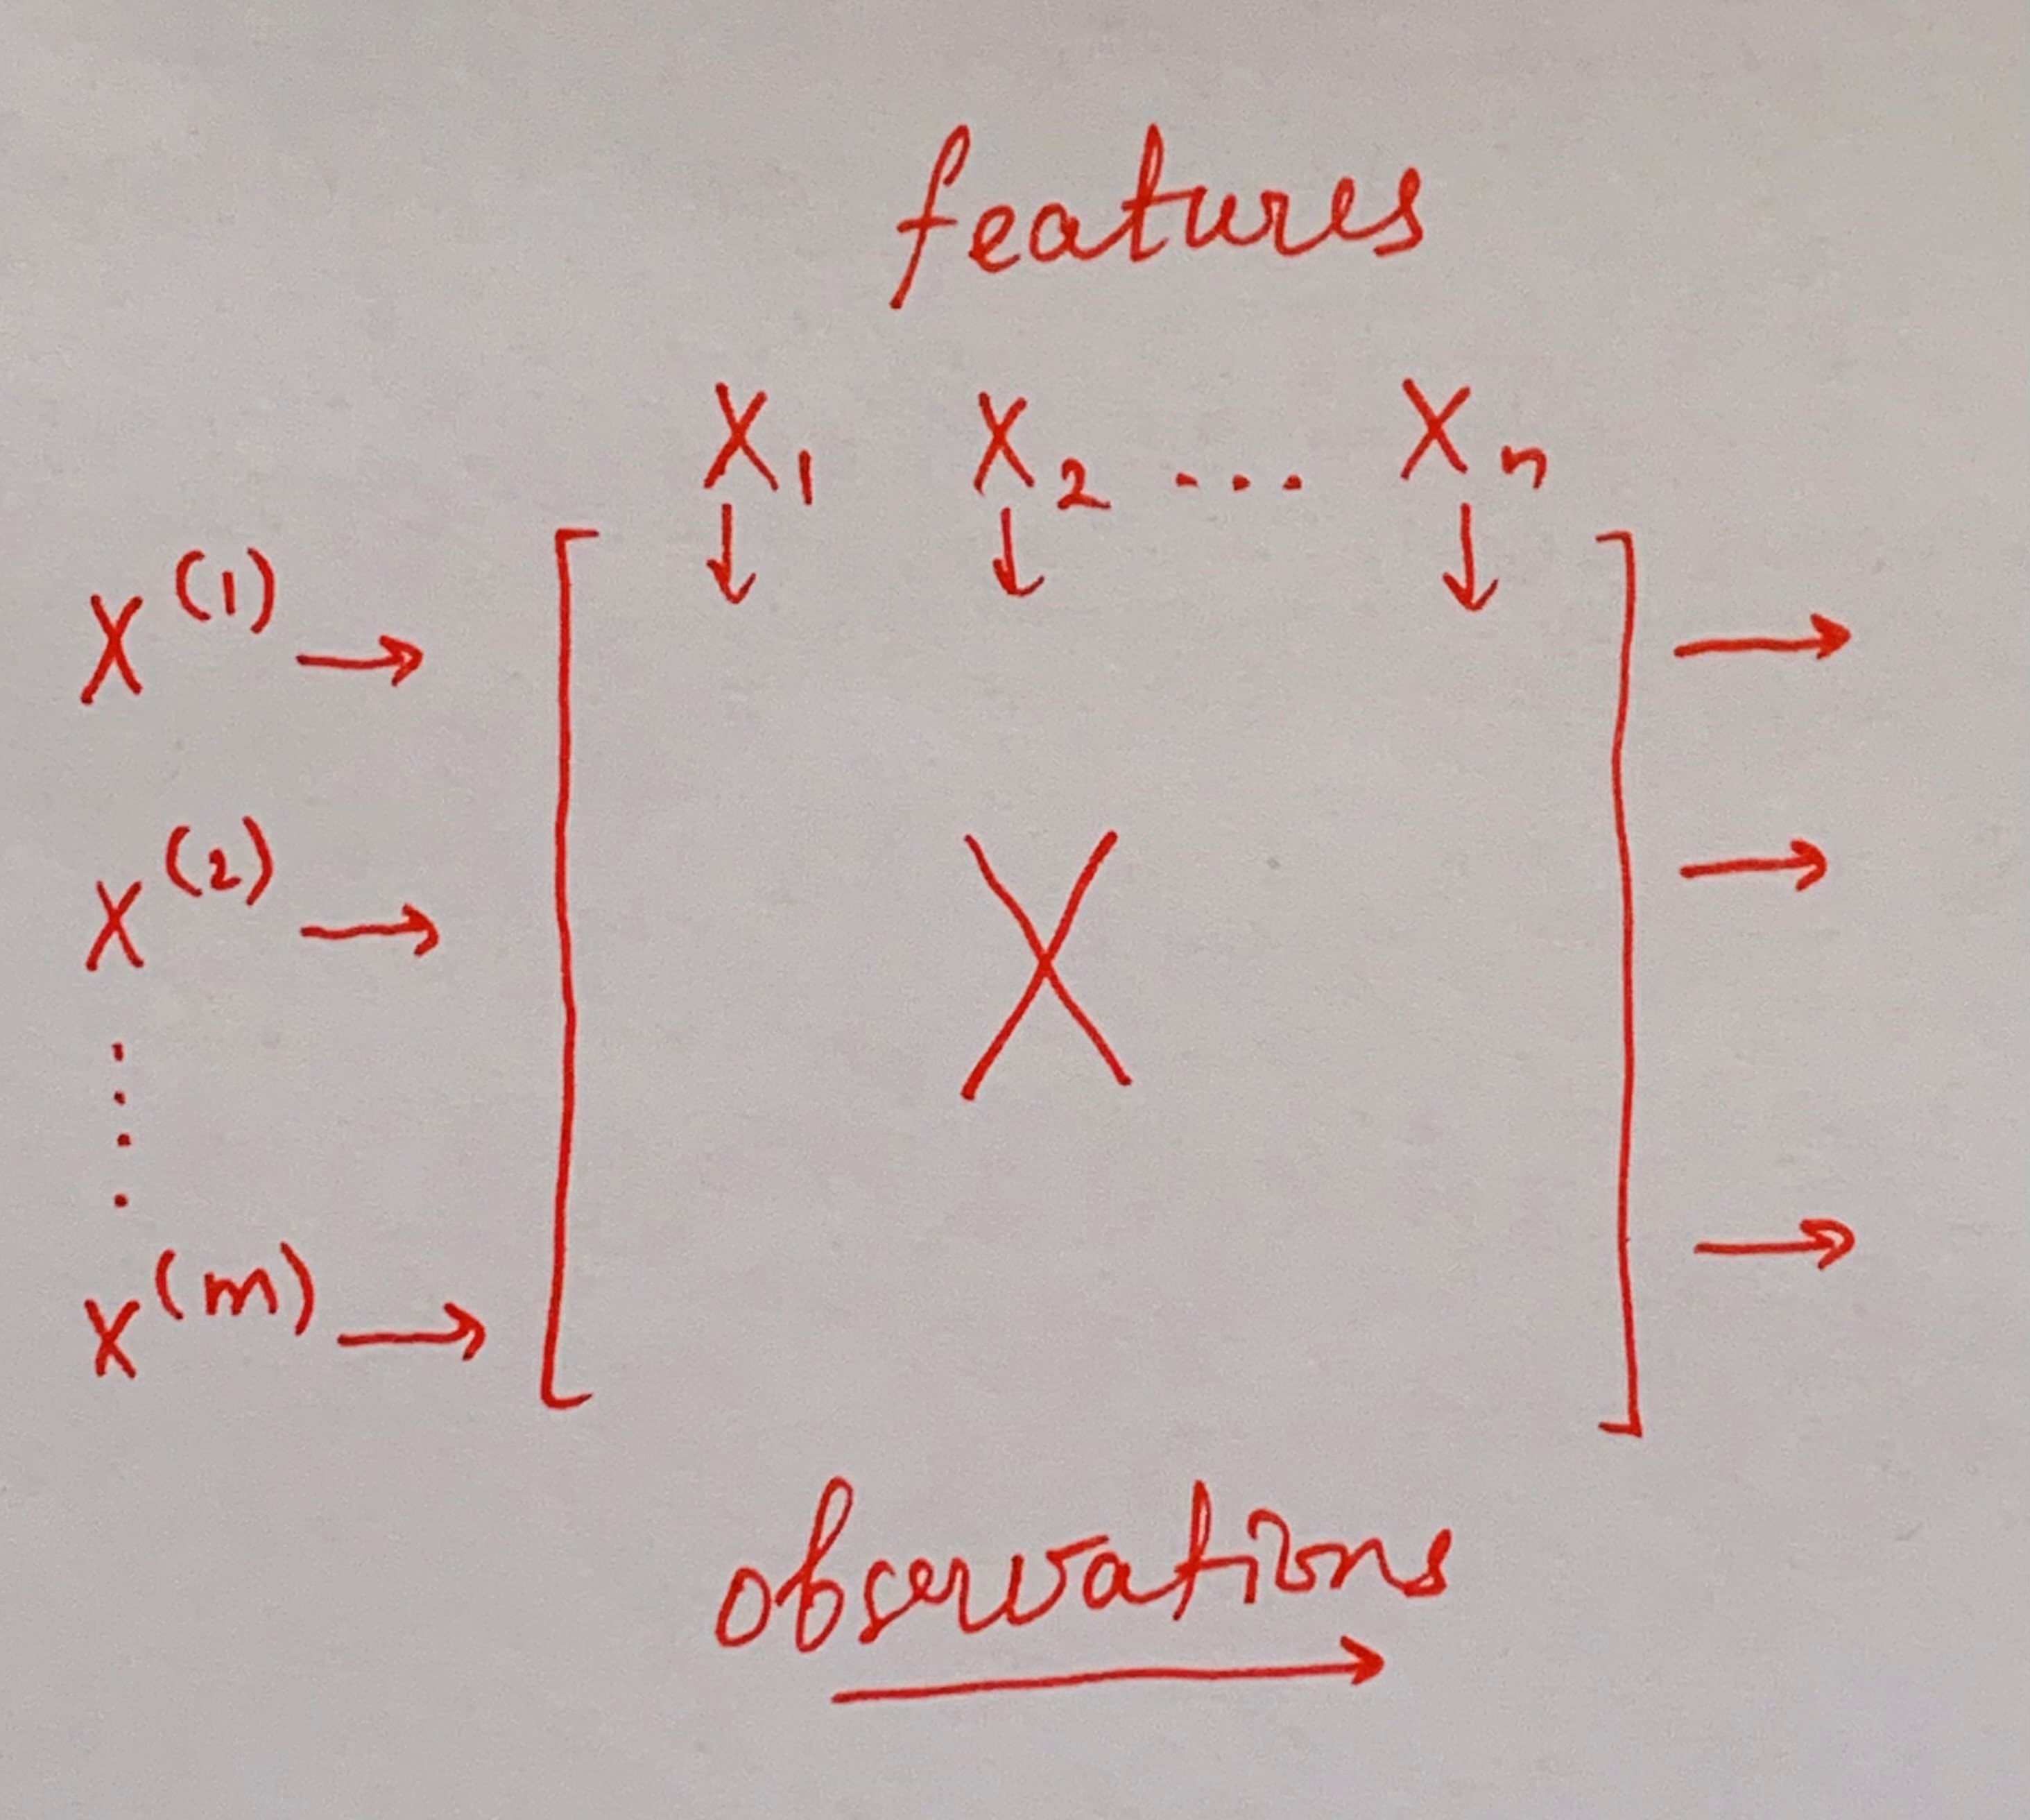 features
X₁ X₂ ... Xₙ
↓ ↓ ↓
X⁽¹⁾ → [ ] →
X⁽²⁾ → X →
⋮
X⁽ᵐ⁾ → →
observations
→